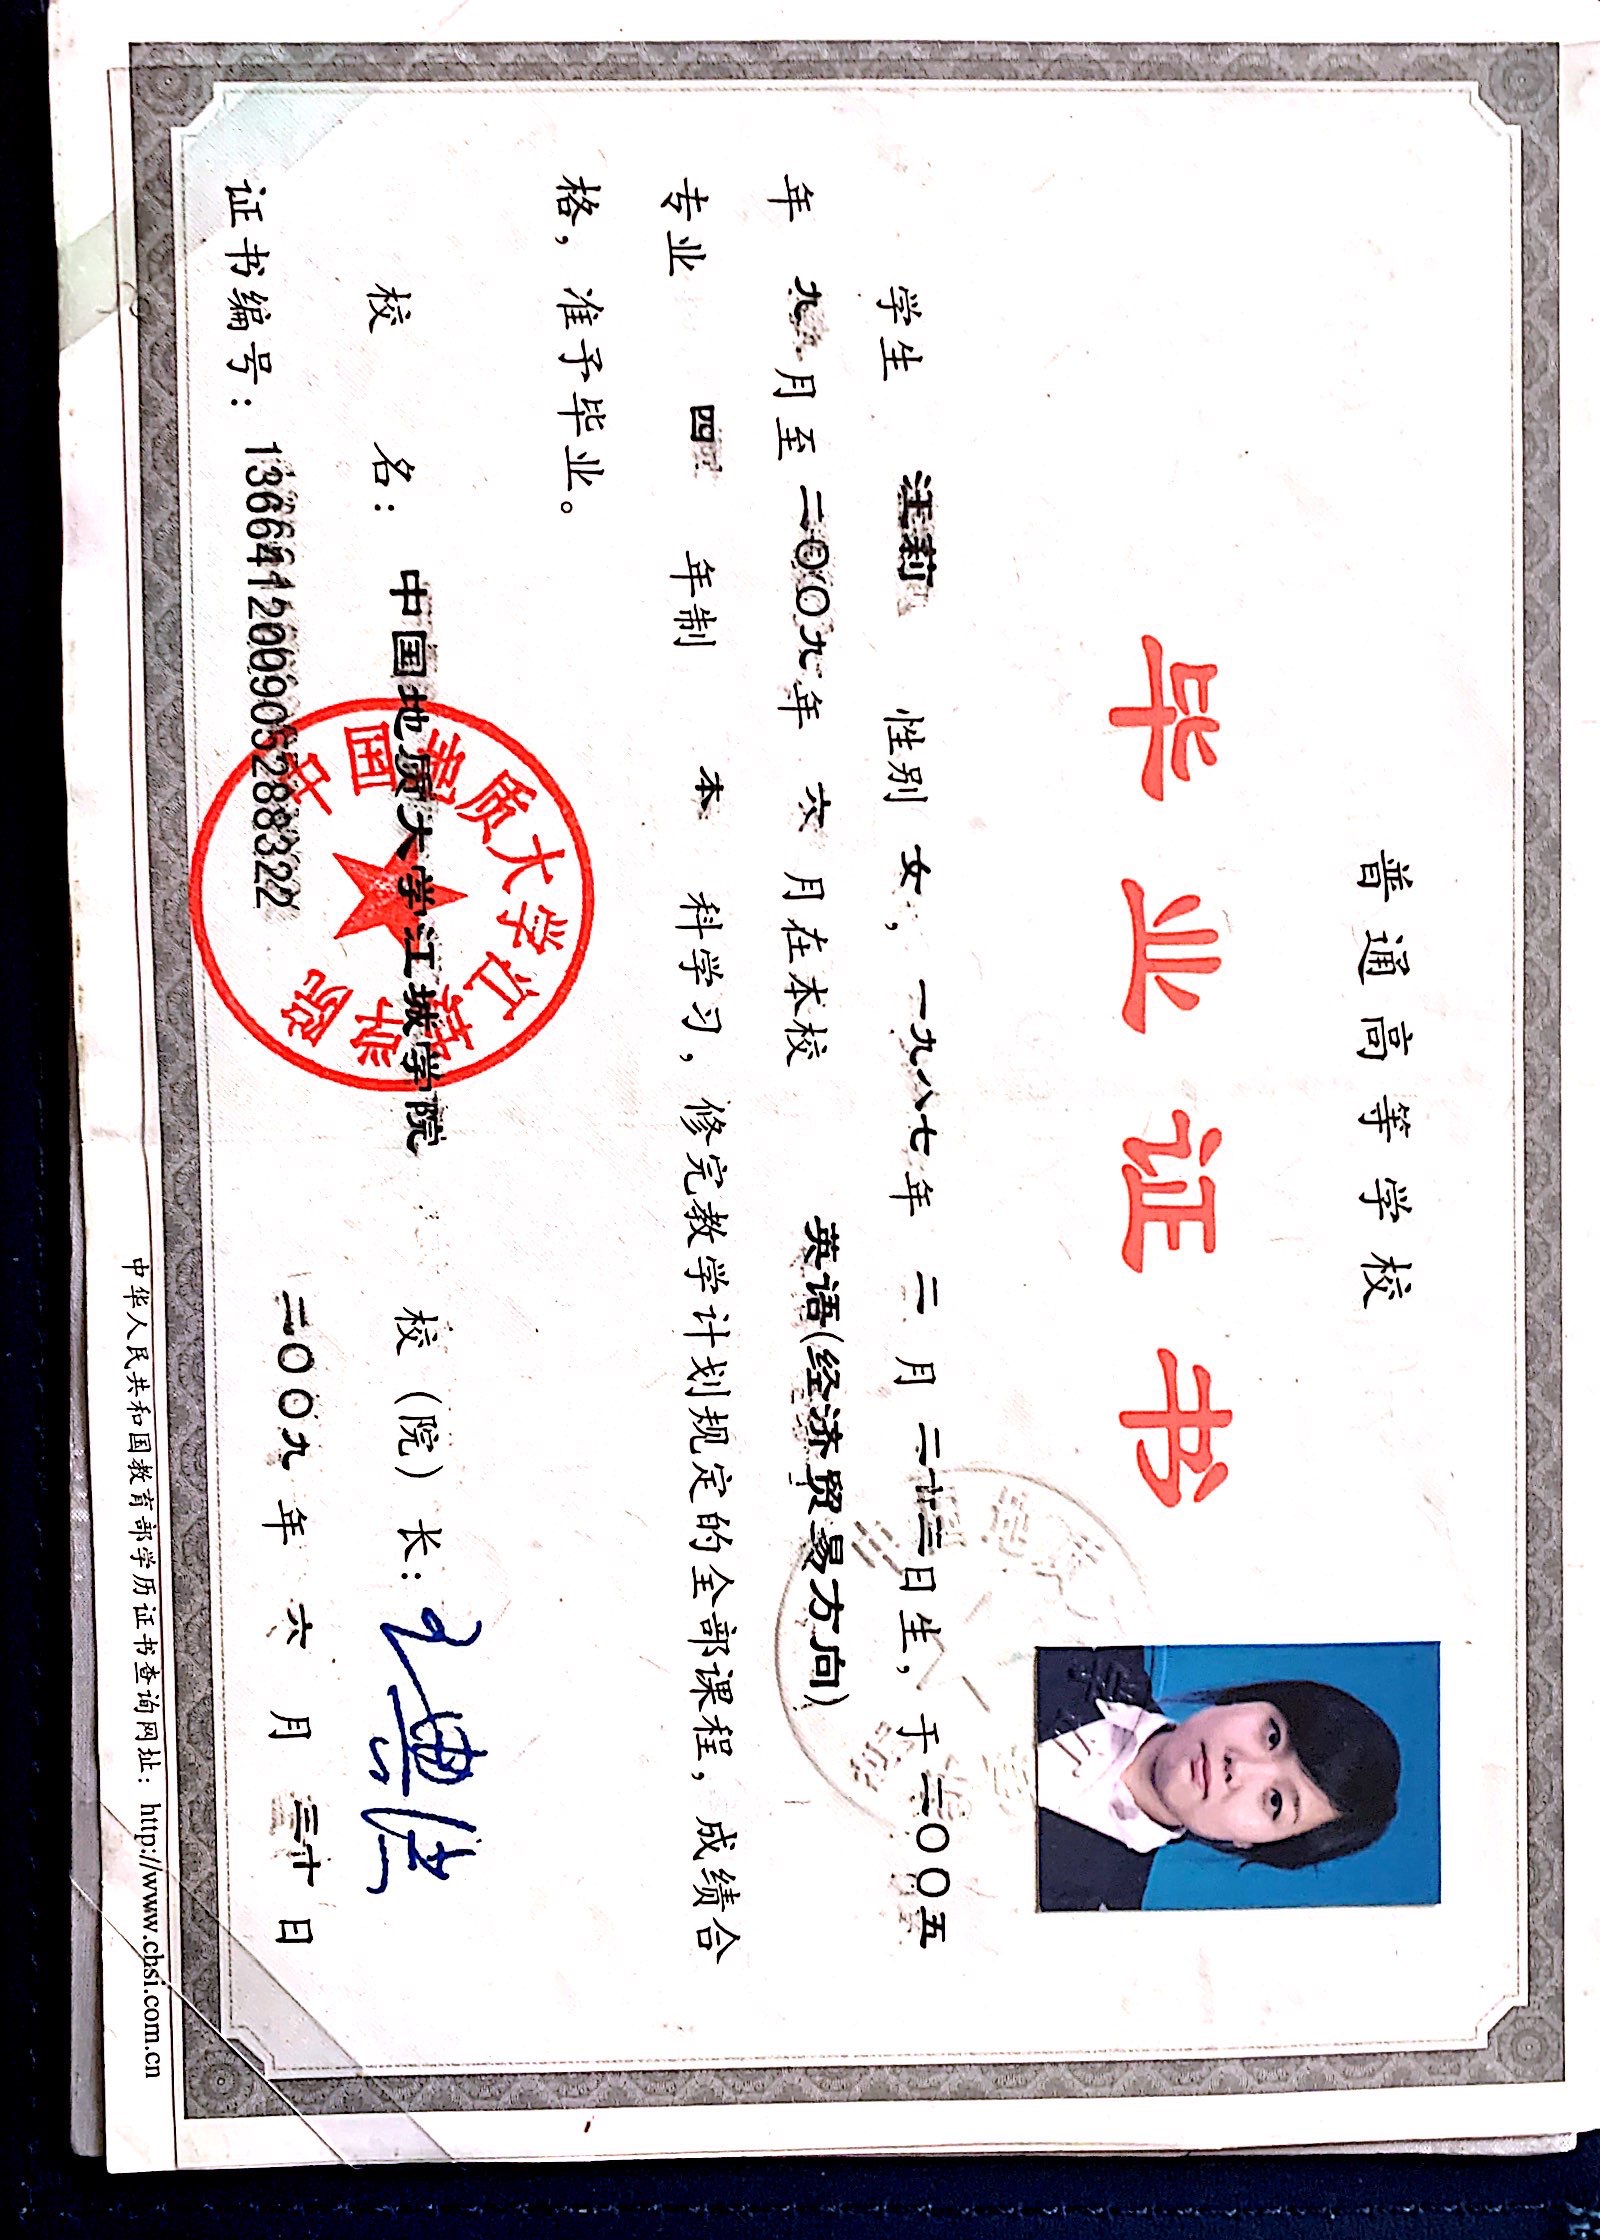 普通高等学校
毕业证书
学生 汪莉 性别 女，一九八七年 二 月 二十三日生，于二〇〇五
年 九 月至 二〇〇九年 六 月在本校 英语(经济贸易方向)
专业 四 年制 本 科学习，修完教学计划规定的全部课程，成绩合
格，准予毕业。
校 名： 中国地质大学江城学院 校（院）长：
中国地质大学江城学院
证书编号：136641200905288322 二〇〇九 年 六 月 三十 日
中华人民共和国教育部学历证书查询网址：http://www.chsi.com.cn